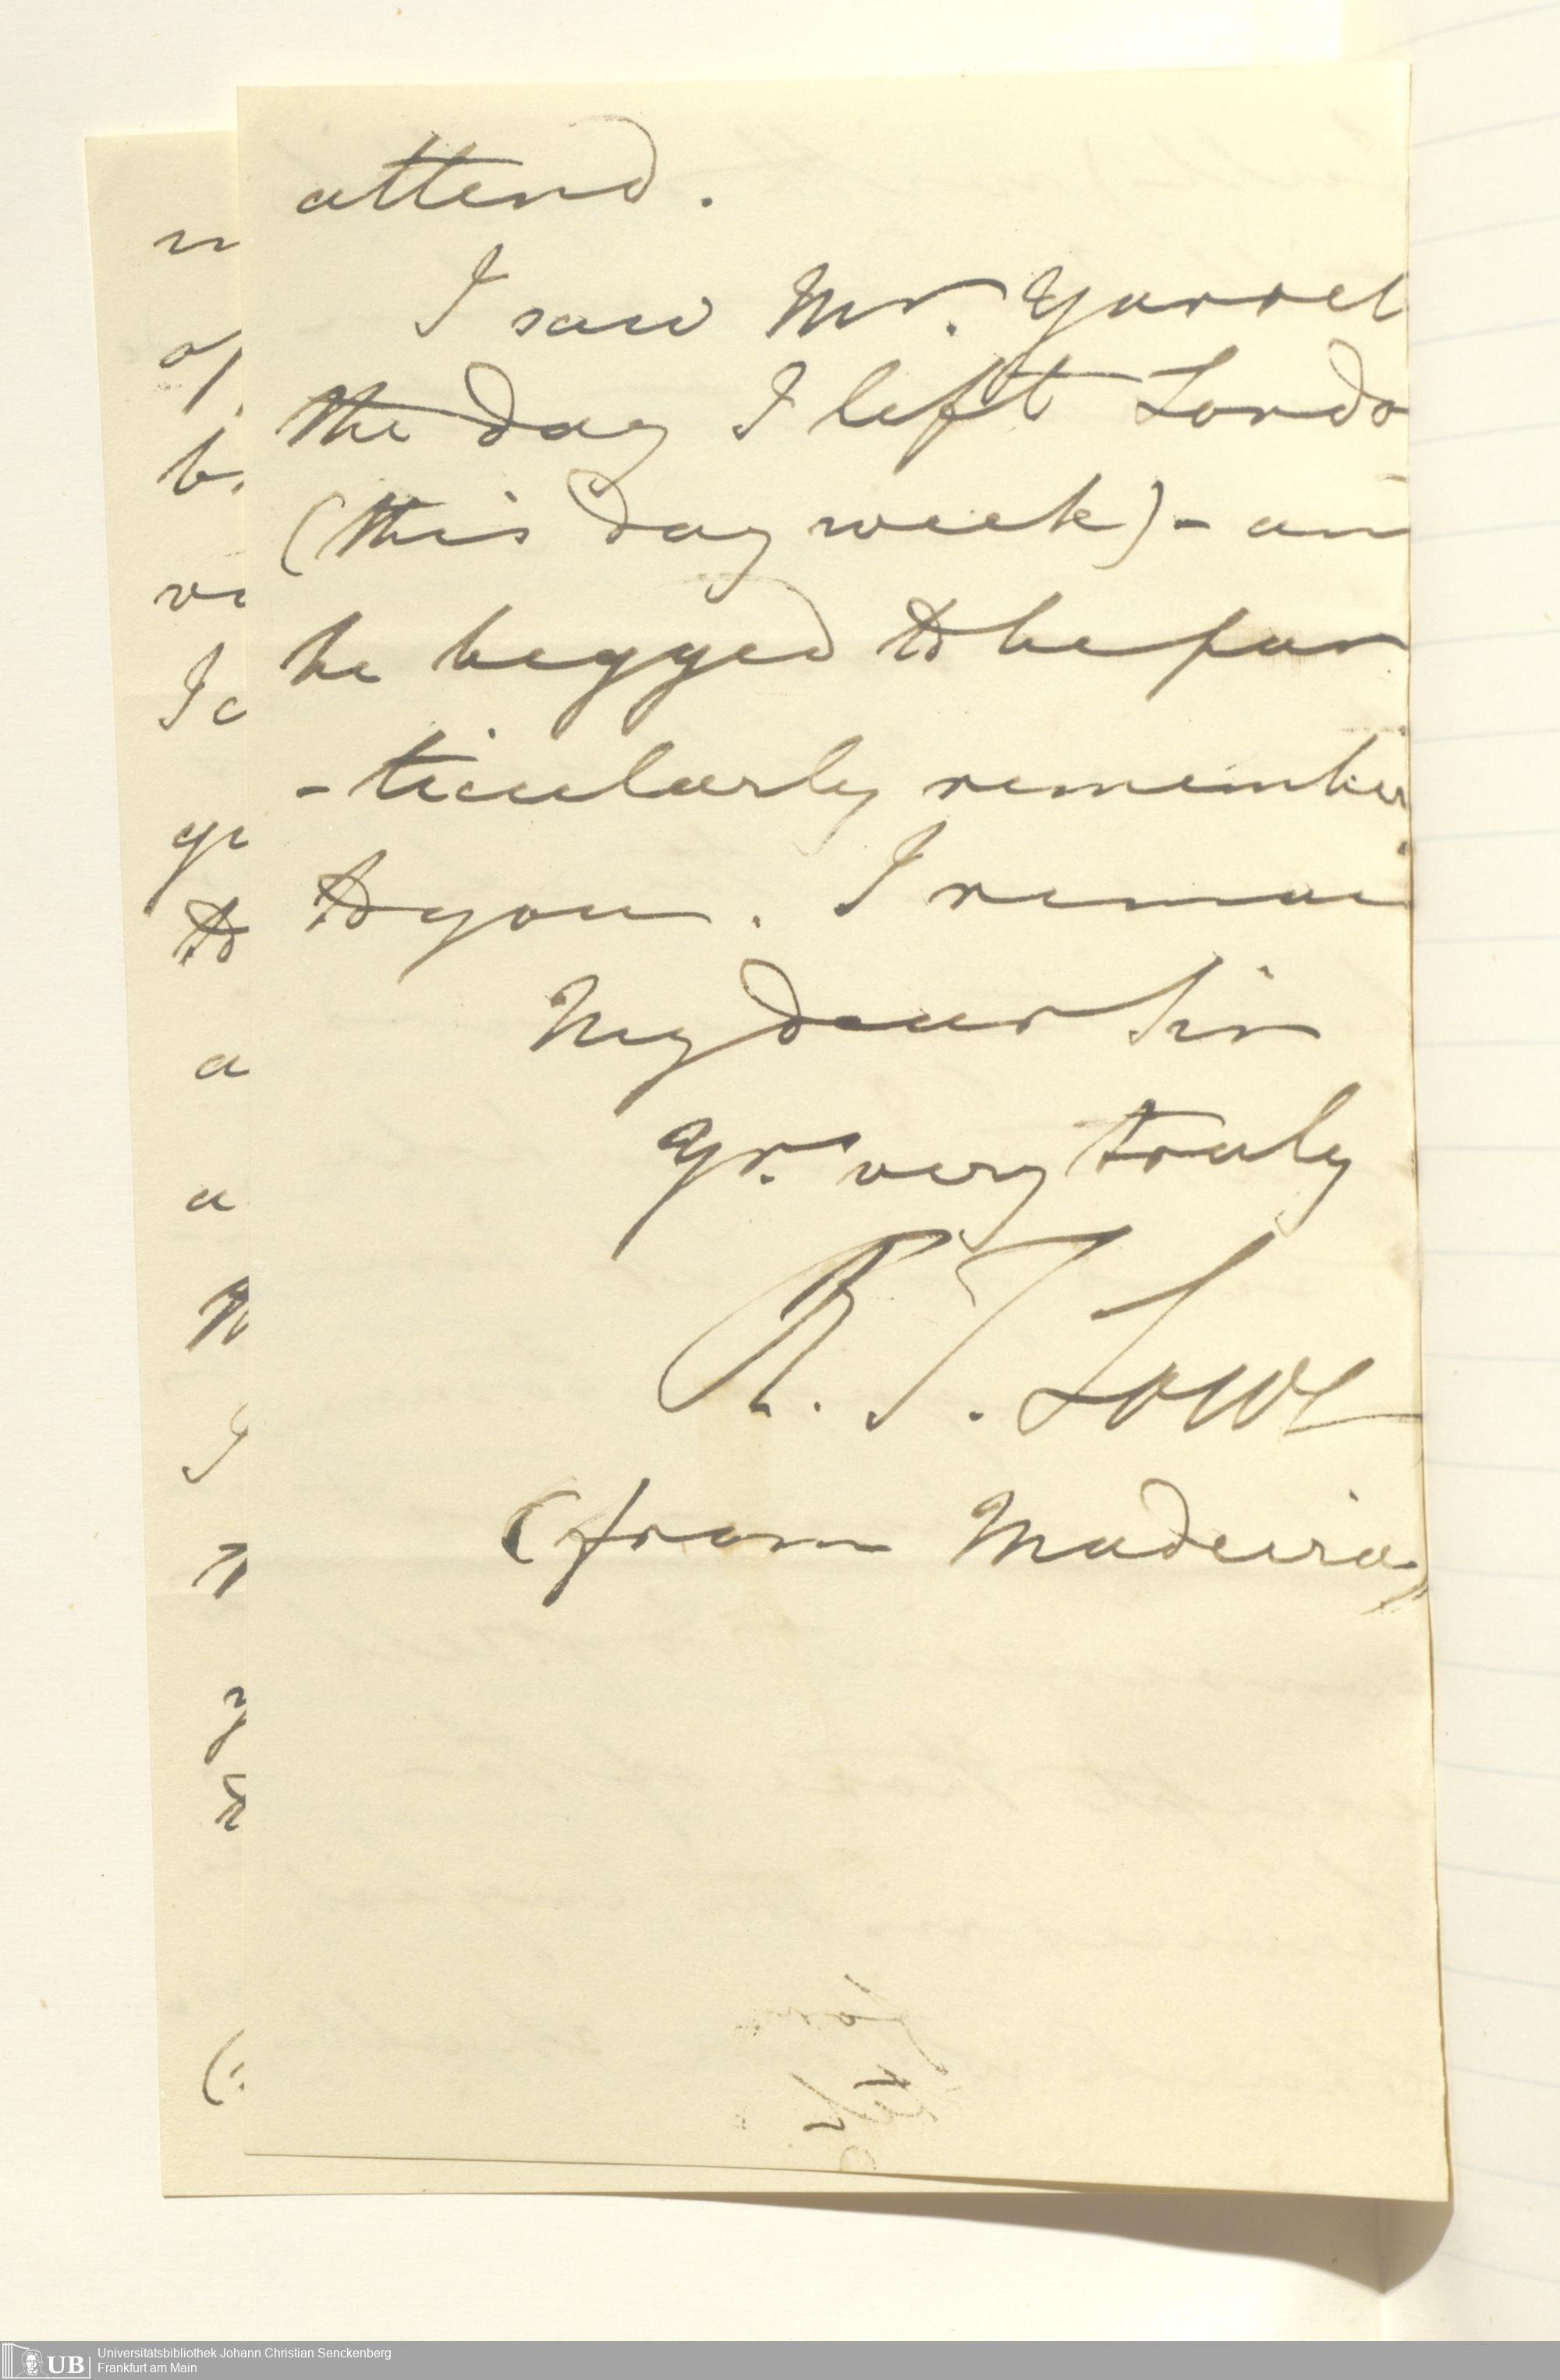 attend.
I saw Mr. Yarrel
the day I left Londo
(this day week) - an
he begged to be par
-ticularly remember
to you. I remai
My dear Sir
Yr. very truly
R. T. Lowe
(from Madeira)
Universitätsbibliothek Johann Christian Senckenberg
Frankfurt am Main
UB